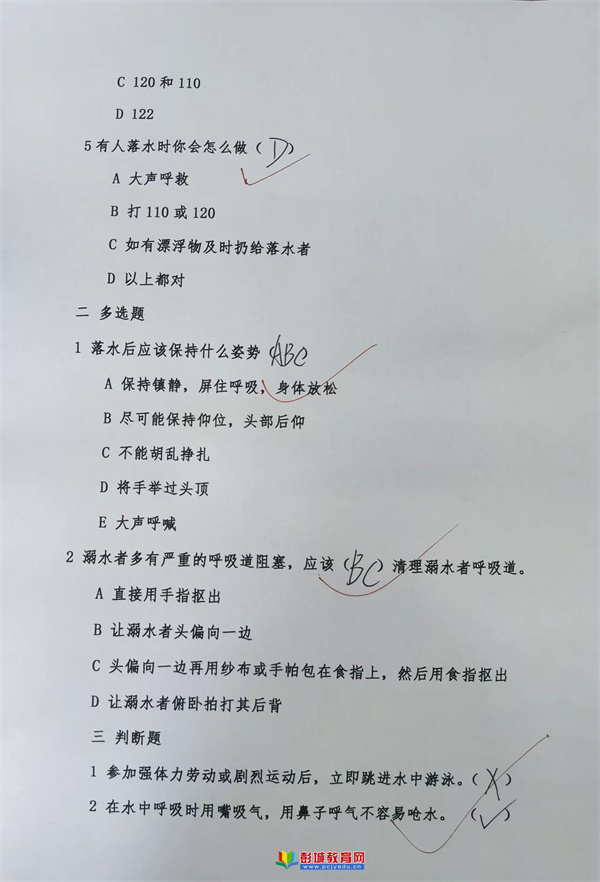 C 120和110
D 122
5有人落水时你会怎么做（D）
A 大声呼救
B 打110或120
C 如有漂浮物及时扔给落水者
D 以上都对
二 多选题
1 落水后应该保持什么姿势 ABC
A 保持镇静，屏住呼吸，身体放松
B 尽可能保持仰位，头部后仰
C 不能胡乱挣扎
D 将手举过头顶
E 大声呼喊
2 溺水者多有严重的呼吸道阻塞，应该（BC）清理溺水者呼吸道。
A 直接用手指抠出
B 让溺水者头偏向一边
C 头偏向一边再用纱布或手帕包在食指上，然后用食指抠出
D 让溺水者俯卧拍打其后背
三 判断题
1 参加强体力劳动或剧烈运动后，立即跳进水中游泳。（X）
2 在水中呼吸时用嘴吸气，用鼻子呼气不容易呛水。（√）
彭城教育网
www.pcjyedu.cn